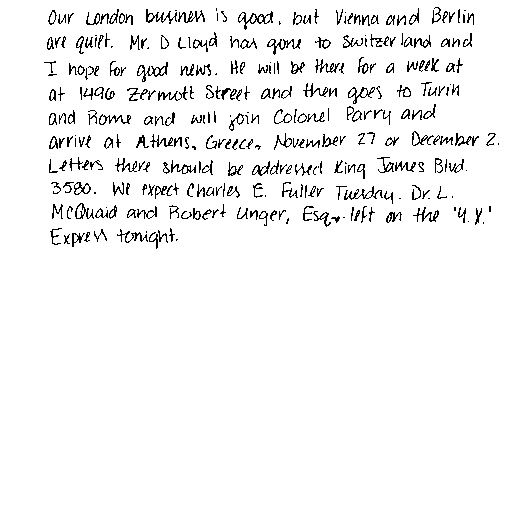 Our London business is good, but Vienna and Berlin
are quiet. Mr. D Lloyd has gone to Switzerland and
I hope for good news. He will be there for a week at
at 1496 Zermott Street and then goes to Turin
and Rome and will join Colonel Parry and
arrive at Athens, Greece, November 27 or December 2.
Letters there should be addressed King James Blvd.
3580. We expect Charles E. Fuller Tuesday. Dr. L.
McQuaid and Robert Unger, Esq., left on the "Y.X."
Express tonight.